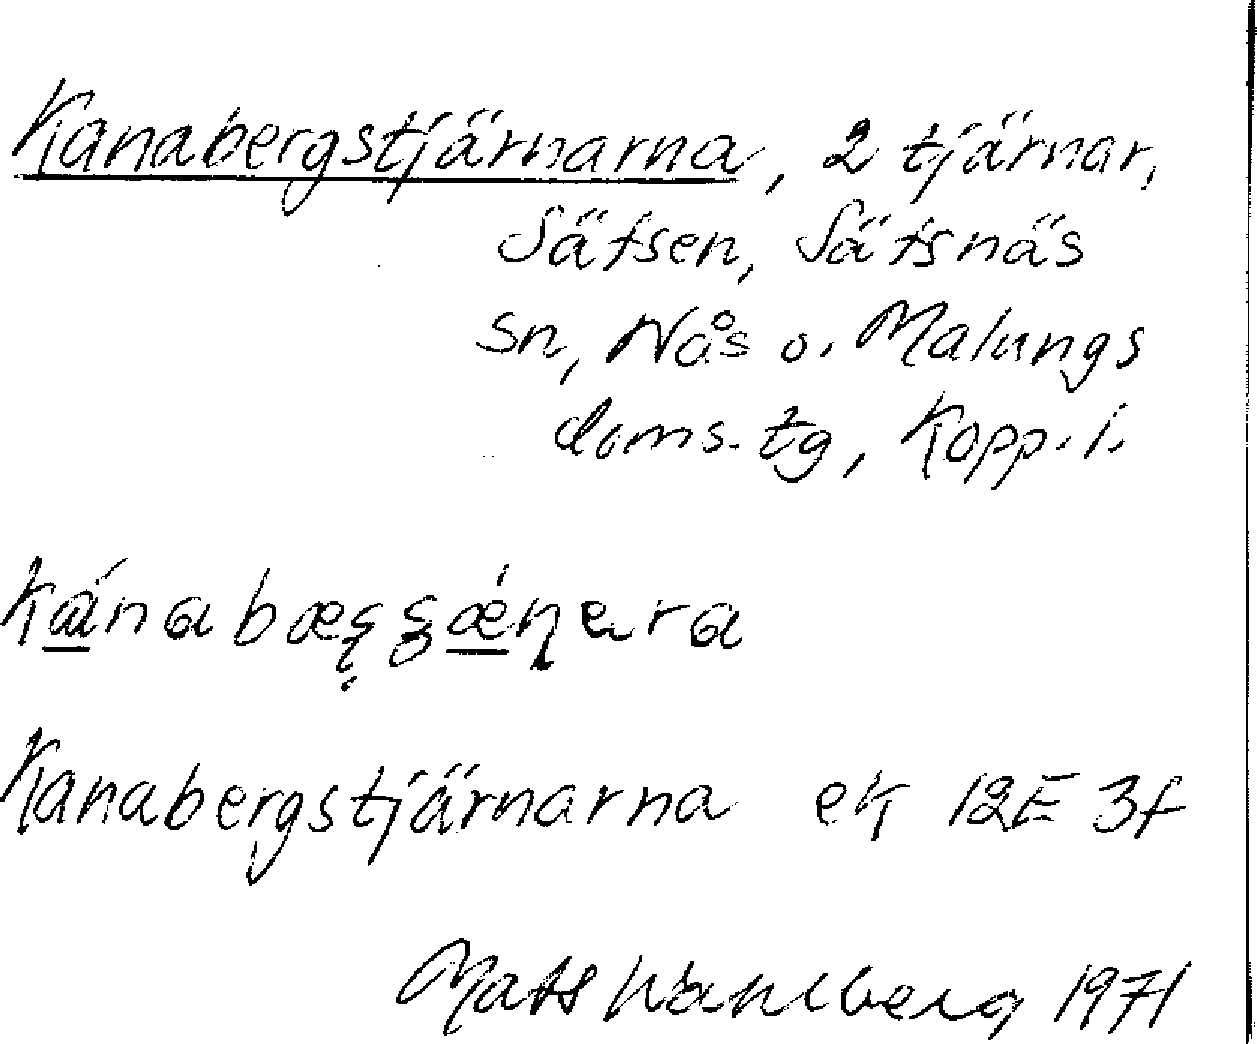 Kanabergstjärnarna, 2 tjärnar,
Säfsen, Säfsnäs
sn, Nås o. Malungs
doms. tg, Kopp. l.
Kanabergstjärnarna ek 12E 3f
Mats Wahlberg 1971